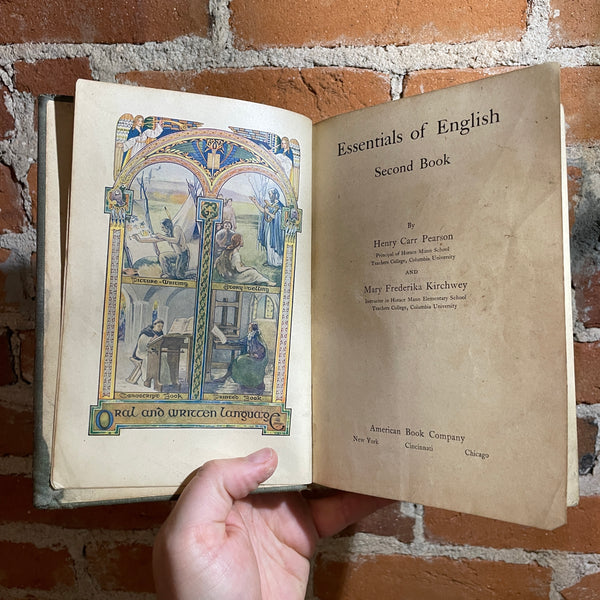 Picture-Writing
Story-telling
Manuscript Book
Printed Book
Oral and written language
Essentials of English
Second Book
By
Henry Carr Pearson
Principal of Horace Mann School
Teachers College, Columbia University
AND
Mary Frederika Kirchwey
Instructor in Horace Mann Elementary School
Teachers College, Columbia University
American Book Company
New York Cincinnati Chicago